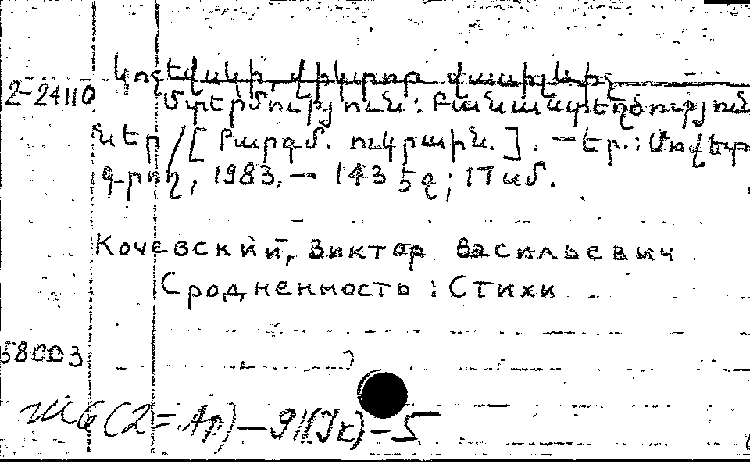 Կոչևսկի, Վիկտոր Վասիլևիչ
2-24110 Մտերմություն: Բանաստեղծություն
ներ / [Թարգմ. ուկրաին.]. — Եր.: Սովետ
գրող, 1983. — 143 էջ; 17 սմ.
Кочевский, Виктор Васильевич
Сродненность : Стихи
58003
(2=Ап)—91(Ук)—5